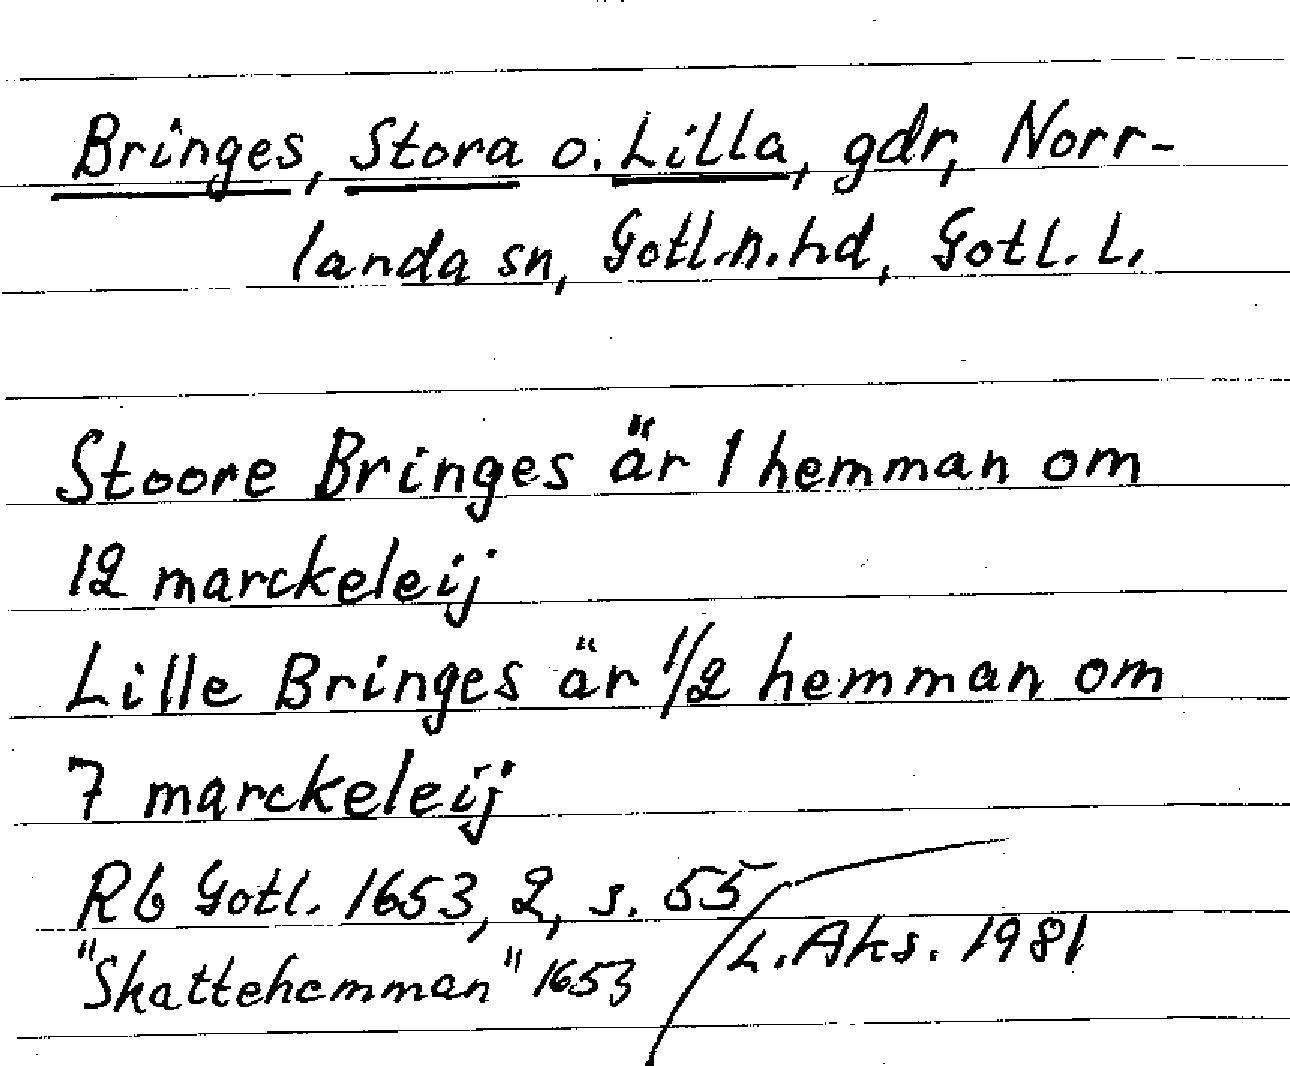 Bringes, Stora o. Lilla, gdr, Norr-
landa sn, Gotl.n.hd, Gotl. L.
Stoore Bringes är 1 hemman om
12 marckeleij
Lille Bringes är 1/2 hemman om
7 marckeleij
Rb Gotl. 1653, 2, s. 55
"Skattehemman" 1653
L. Aks. 1981